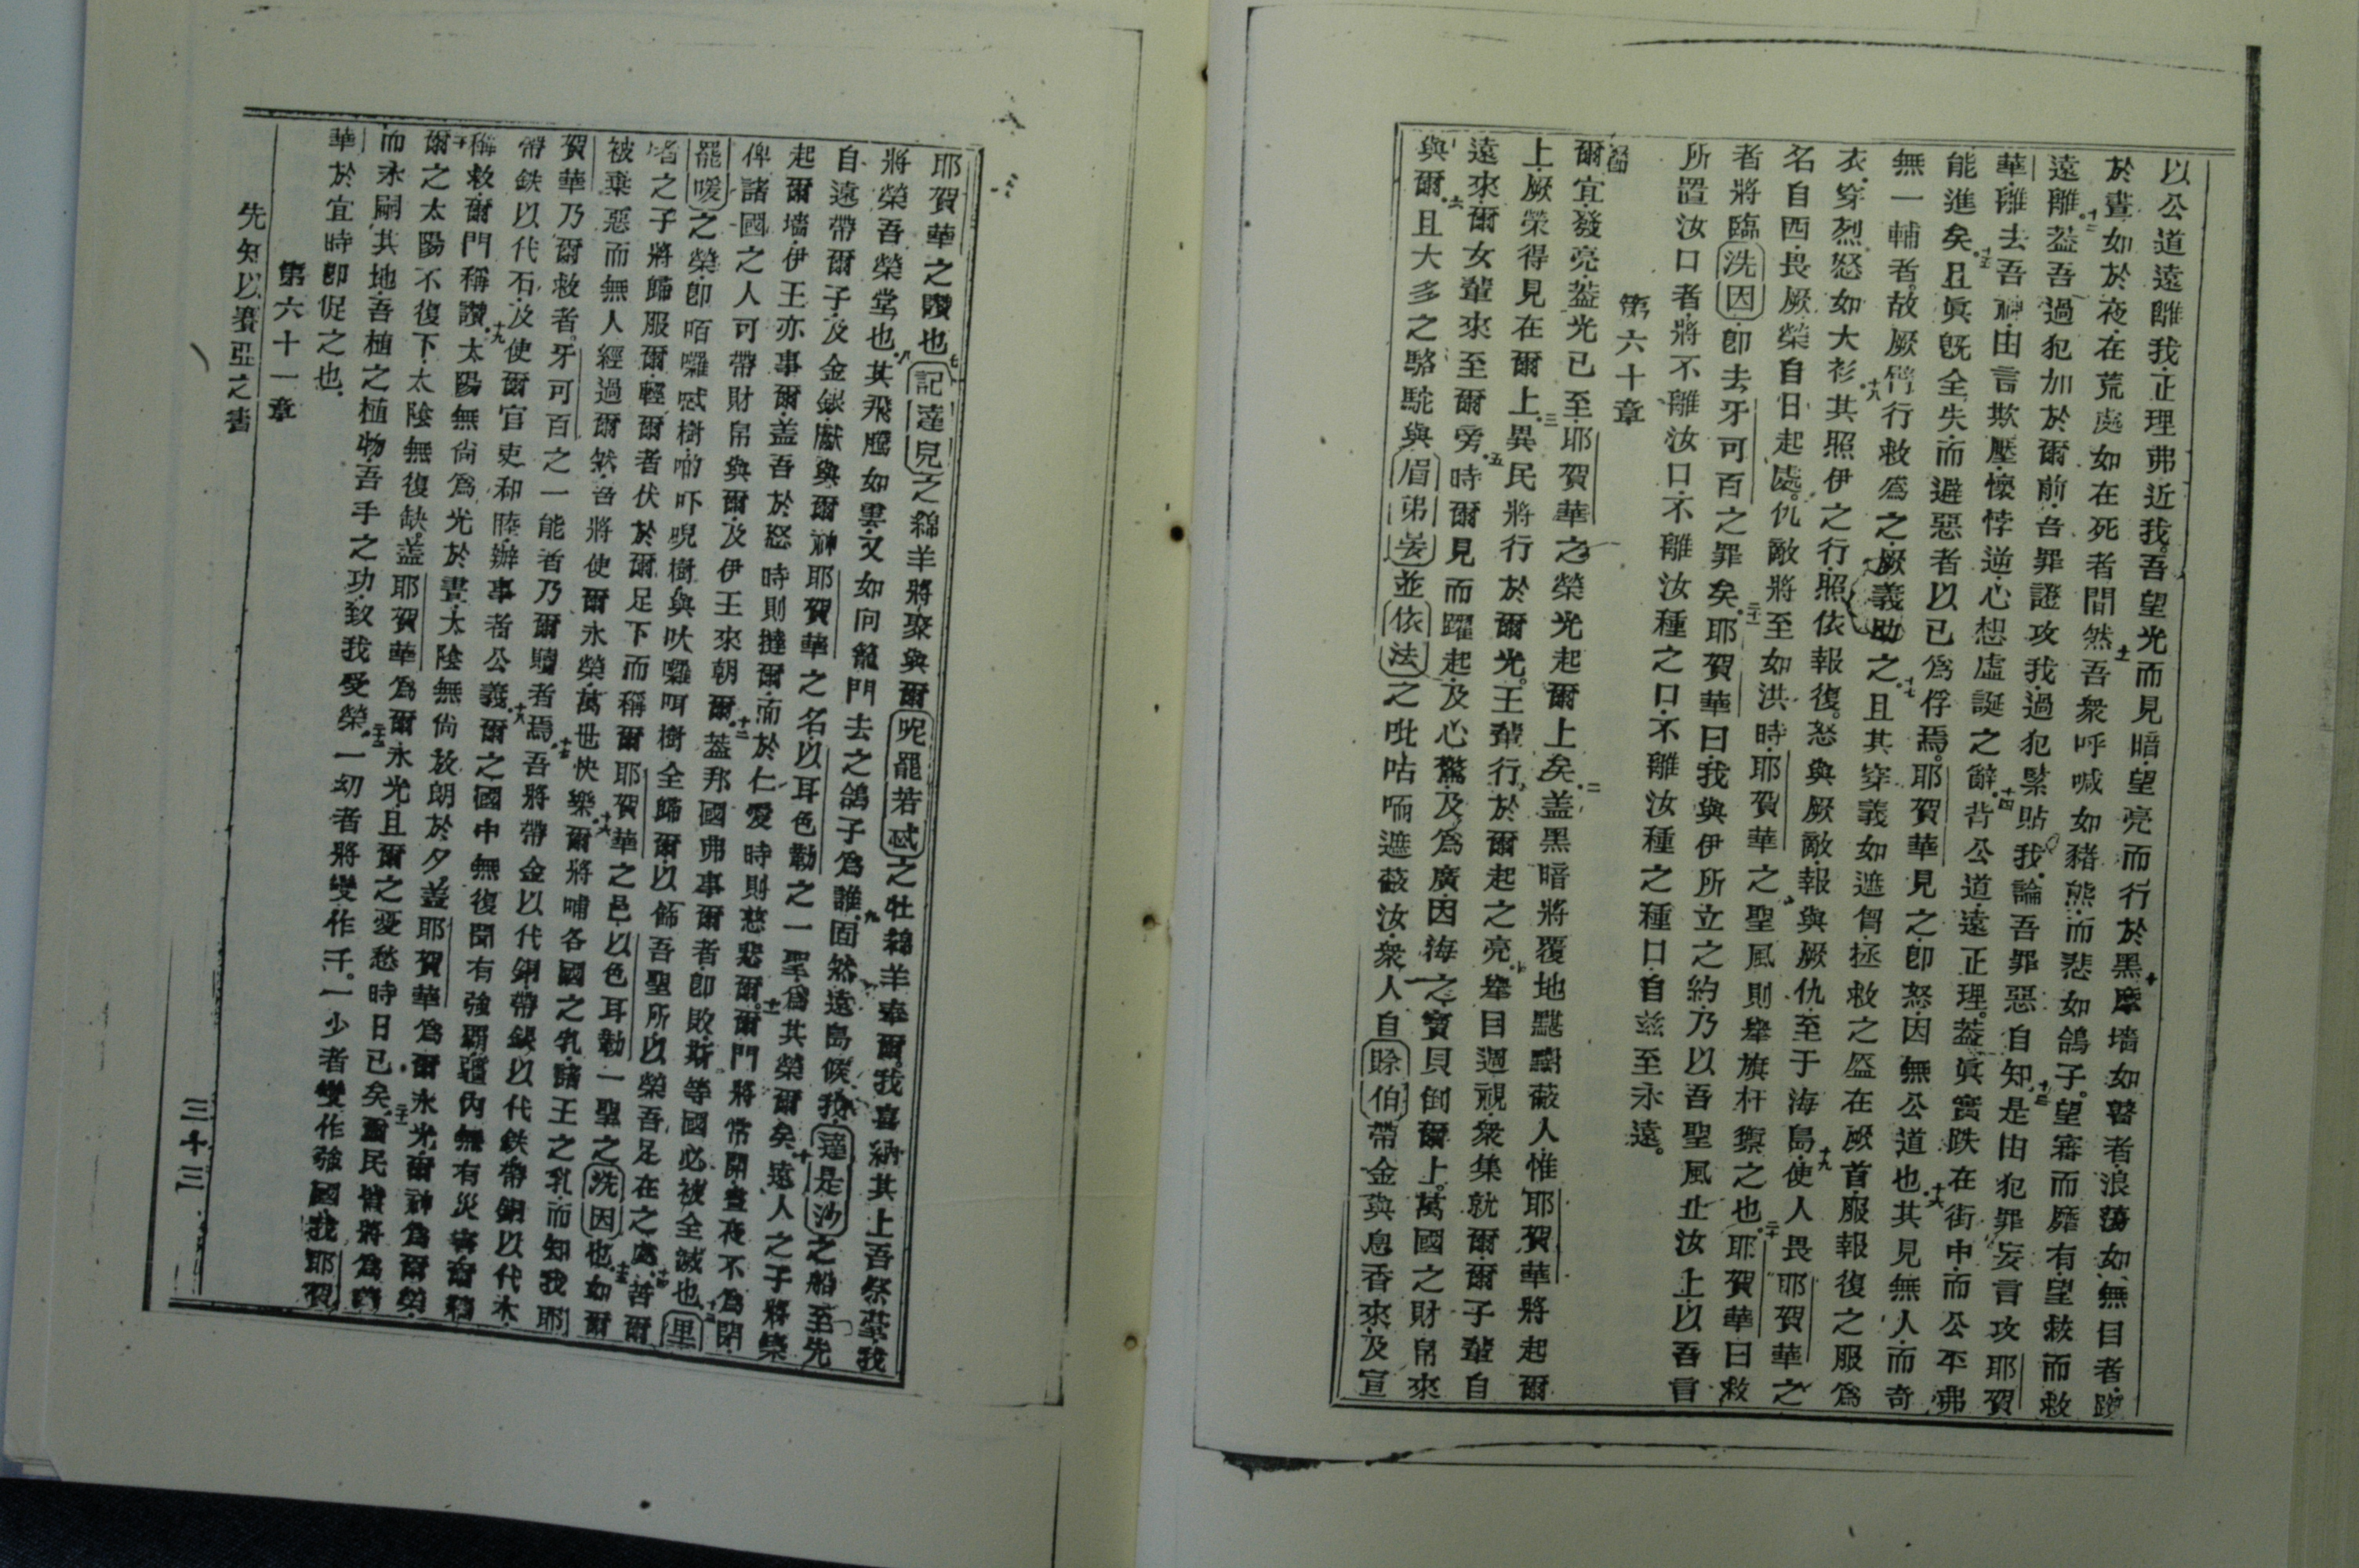 以公道遠離我正理弗近我吾望光而見暗望亮而行於黑十摩墻如瞽者浪蕩如無目者
於晝如於夜在荒處如在死者間然十一吾衆呼喊如豬熊而悲如鴿子望審而靡有望救而救
遠離十二蓋吾過犯加於爾前吾罪證攻我過犯緊貼我論吾罪惡自知十三是由犯罪妄言攻耶賀
華離去吾神由言欺壓懷悖逆心想虛誕之辭十四背公道遠正理蓋眞實跌在街中而公平弗
能進矣十五且眞旣全失而避惡者以已爲俘焉耶賀華見之卽怒因無公道也十六其見無人而奇
無一輔者故厥臂行救爲之厥義助之十七且其穿義如遮胷拯救之盔在厥首服報復之服爲
衣穿烈怒如大衫十八其照伊之行照依報復怒與厥敵報與厥仇至于海島十九使人畏耶賀華之
名自西畏厥榮自日起處仇敵將至如洪時耶賀華之聖風則舉旗杆禦之也二十耶賀華曰救
者將臨洗因卽去牙可百之罪矣二十一耶賀華曰我與伊所立之約乃以吾聖風止汝上以吾言
所置汝口者將不離汝口不離汝種之口不離汝種之種口自茲至永遠
第六十章
爾宜發亮蓋光已至耶賀華之榮光起爾上矣二蓋黑暗將覆地黑霧蔽人惟耶賀華將起爾
上厥榮得見在爾上三異民將行於爾光王輩行於爾起之亮四舉目週視衆集就爾爾子輩自
遠來爾女輩來至爾旁五時爾見而躍起及心驚及爲廣因海之寶貝倒爾上萬國之財帛來
與爾六且大多之駱駝與眉弟晏並依法之吡咕唡遮蔽汝衆人自賒伯帶金與息香來及宣
耶賀華之讚也七記達兒之綿羊將聚與爾呢罷若忒之牡綿羊奉爾我喜納其上吾祭臺我
將榮吾榮堂也八其飛騰如雲又如向籠門去之鴿子爲誰九固然遠島候我達是沙之船至先
自遠帶爾子及金銀獻與爾神耶賀華之名以耳色勒之一聖爲其榮爾矣十遠人之子將築
起爾墻伊王亦事爾蓋吾於怒時則撻爾而於仁愛時則慈悲爾十一爾門將常開晝夜不爲閉
俾諸國之人可帶財帛與爾及伊王來朝爾十二蓋邦國弗事爾者卽敗斯等國必被全滅也十三里
罷嗳之榮卽㕷囉忒樹啲吓唲樹與吠囉咡樹全歸爾以飾吾聖所以榮吾足在之處十四苦爾
者之子將歸服爾輕爾者伏於爾足下而稱爾耶賀華之邑以色耳勒一聖之洗因也十五如爾
被棄惡而無人經過爾然吾將使爾永榮萬世快樂十六爾將哺各國之乳諸王之乳而知我耶
賀華乃爾救者牙可百之一能者乃爾贖者焉十七吾將帶金以代銅帶銀以代鉄帶銅以代木
帶鉄以代石及使爾官吏和睦辦事者公義十八爾之國中無復聞有強霸疆內無有災害爾稱
稱救爾門稱讚十九太陽無尙爲光於晝太陰無尙放朗於夕蓋耶賀華爲爾永光爾神爲爾榮
二十爾之太陽不復下太陰無復缺蓋耶賀華爲爾永光且爾之憂愁時日已矣二十一爾民皆將爲義
而永嗣其地吾植之植物吾手之功致我受榮二十二一幼者將變作千一少者變作強國我耶賀
華於宜時卽促之也
第六十一章
先知以賽亞之書
三十三